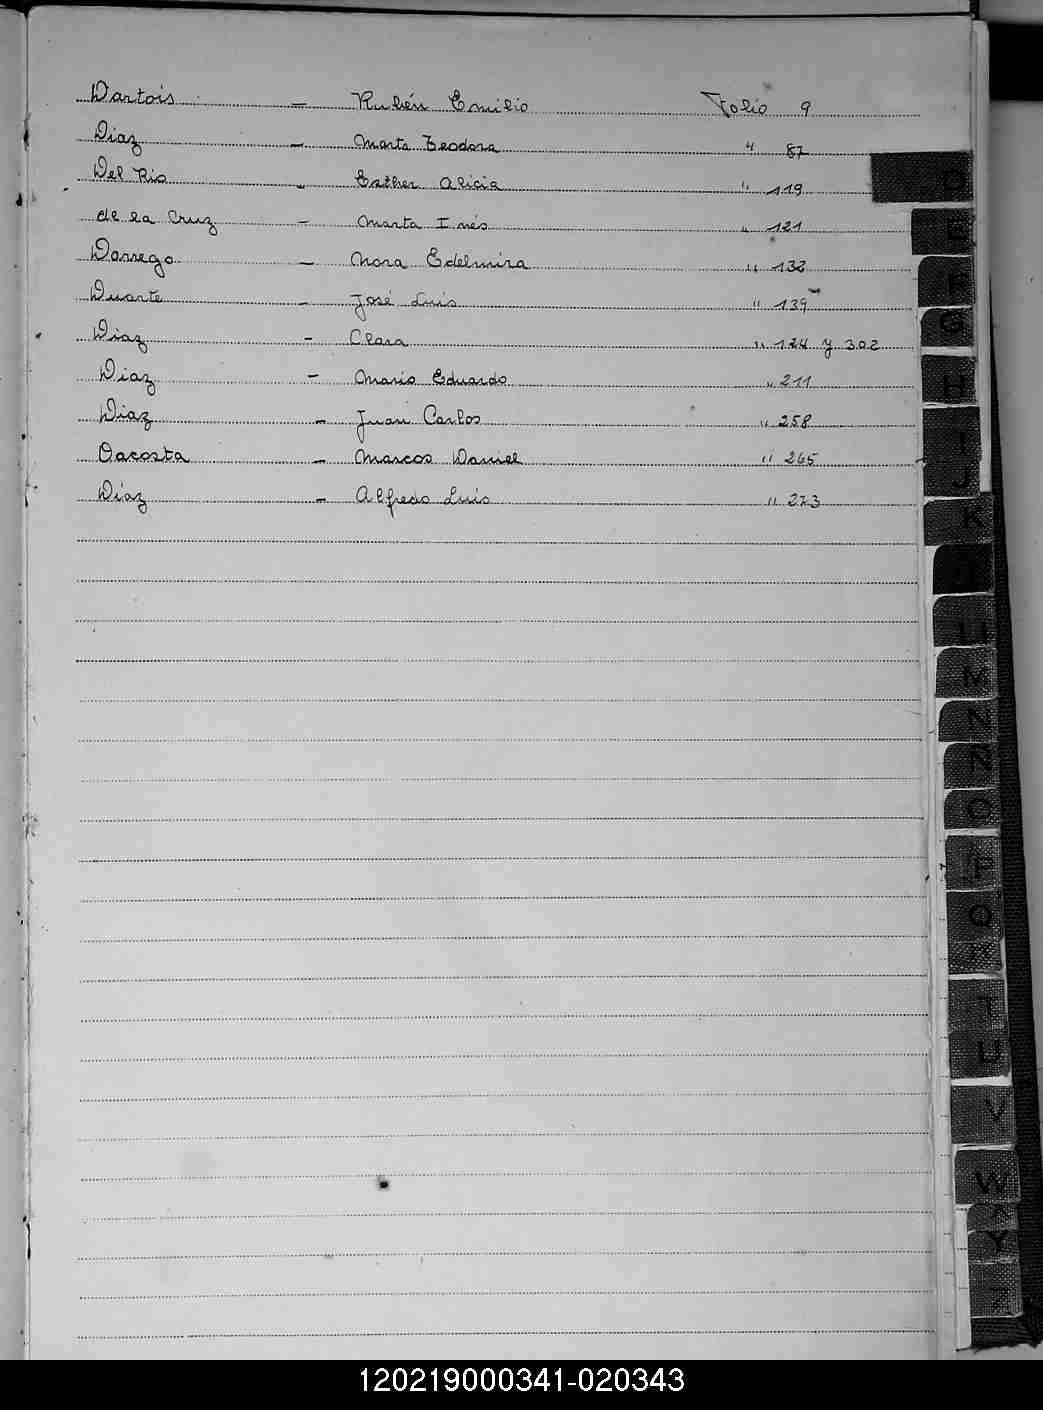 Dartois - Rubén Emilio Folio 9
Diaz - Marta Teodora " 87
Del Rio - Esther Alicia " 119
de la Cruz - Marta Inés " 121
Dorrego - Nora Edelmira " 132
Duarte - José Luis " 139
Diaz - Clara " 124 y 302
Diaz - Mario Eduardo " 211
Diaz - Juan Carlos " 258
Dacosta - Marcos Daniel " 265
Díaz - Alfredo Luis " 273
D
E
F
G
H
I
J
K
L
M
N
Ñ
O
P
Q
R
T
U
V
W
X
Y
120219000341-020343